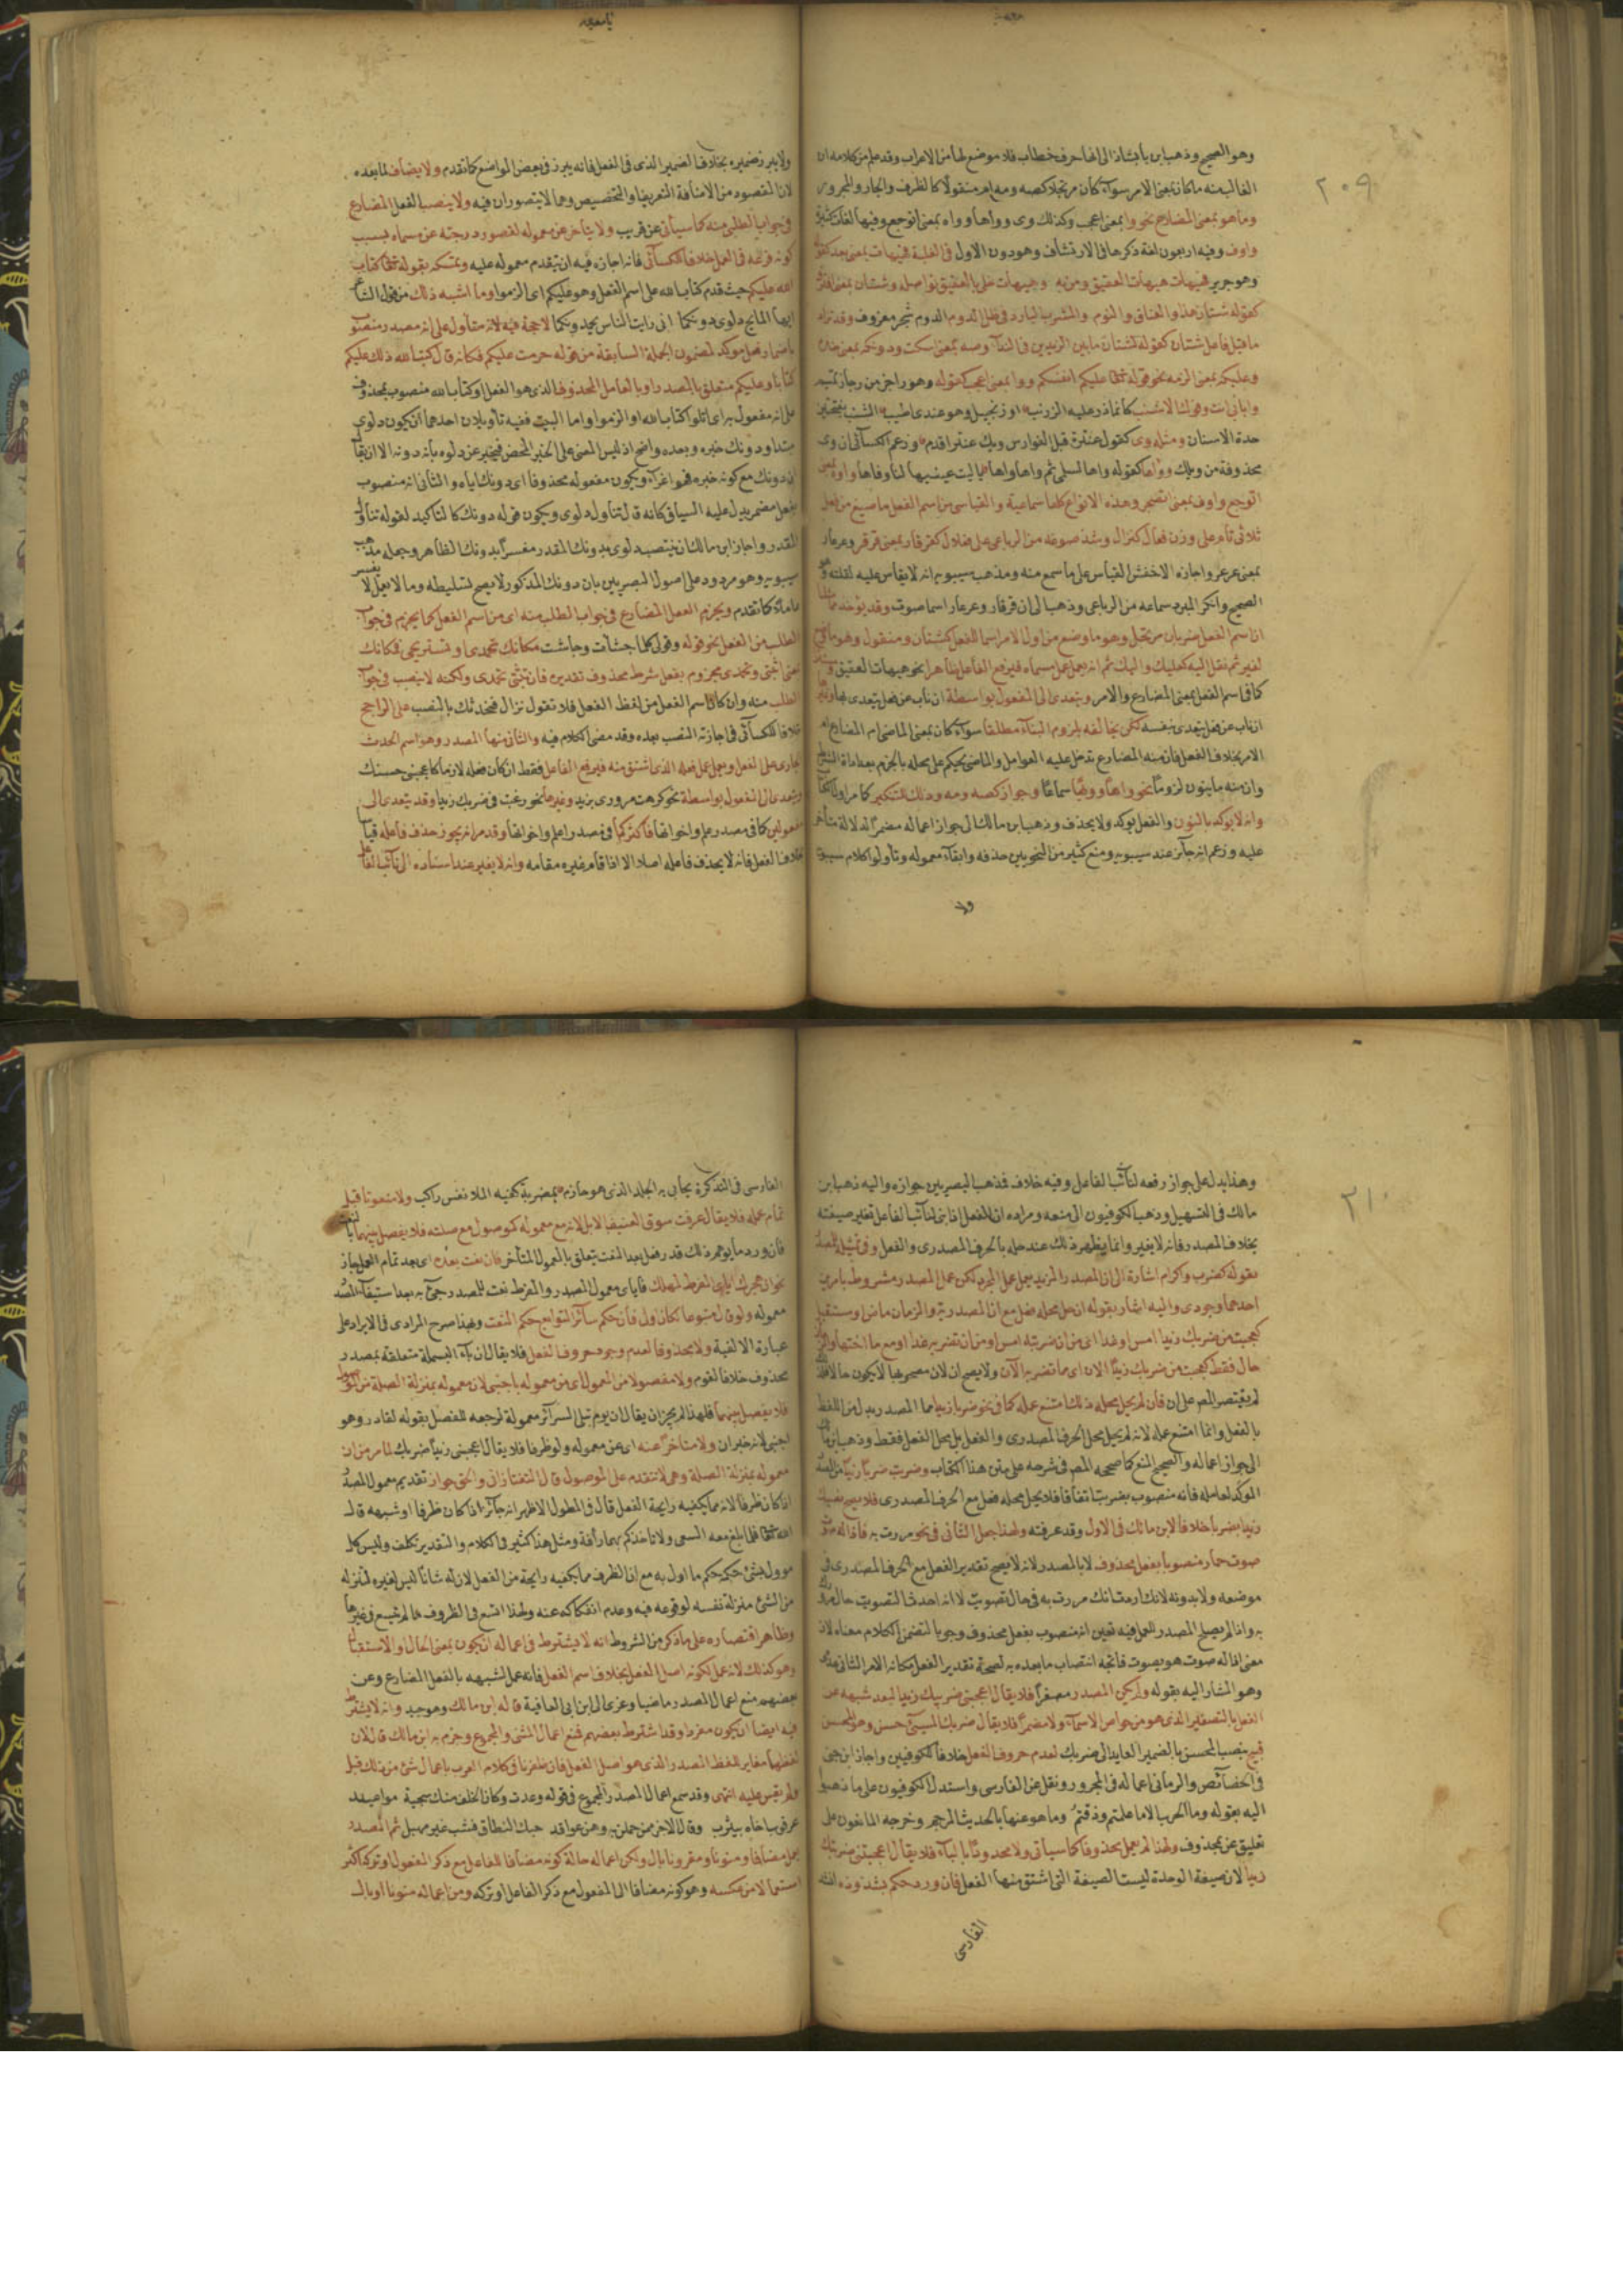 وهو الصحيح وذهب ابن بابشاذ الى انها حرف خطاب فلا موضع لها من الاعراب وقد علم من كلامه ان
الغالب منه ما كان بمعنى الامر سواء كان مرتجلا كصه ومه ام منقولا كالظرف والجار والمجرور
وما هو بمعنى المضارع نحو وا بمعنى اعجب وكذلك وى وواها وواه بمعنى اتوجع وفيها لغات كثيرة
واوف وفيه اربعون لغة ذكرها فى الارتشاف وهو دون الاول فى الغلبة هيهات بمعنى بعد
وهو جرير فهيهات هيهات العقيق ومن به وهيهات خل بالعقيق نواصله وشتان بمعنى افترق
كقوله شتان هذا والعناق والنوم والمشرب البارد فى ظل الدوم الدوم شجر معروف وقد تزاد
ما قبل فاعل شتان كقوله لشتان ما بين اليزيدين فى الندا وصه بمعنى اسكت ودونكه بمعنى خذه
وعليكه بمعنى الزمه نحو قوله تعالى عليكم انفسكم ووا بمعنى اعجب كقوله وهو راجز من رجاز تميم
وا بابى انت وفوك الاشنب كانما ذر عليه الزرنب او زنجبيل وهو عندى اطيب الشنب بفتحتين
حدة الاسنان ومثله وى كقول عنترة قيل الفوارس ويك عنتر اقدم وزعم الكسائى ان وى
محذوفة من ويلك وواها كقوله واها لسلمى ثم واها واها يا ليت عينيها لنا وفاها واوه بمعنى
اتوجع واوف بمعنى اتضجر وهذه الانواع كلها سماعية والقياسى من اسم الفعل ما صيغ من فعل
ثلاثى تام على وزن فعال كنزال وشذ صوغه من الرباعى على فعلال كقرقار بمعنى قرقر وعرعار
بمعنى عرعر واجازه الاخفش القياس على ما سمع منه ومذهب سيبويه انه لا يقاس عليه لقلته وهو
الصحيح وانكر المبرد سماعه من الرباعى وذهب الى ان قرقار وعرعار اسما صوت وقد يؤخذ
ان اسم الفعل ضربان مرتجل وهو ما وضع من اول الامر اسما للفعل كشتان ومنقول وهو ما وضع
لغيره ثم نقل اليه كعليك واليك ثم انه يعمل عمل مسماه فيرفع الفاعل ظاهرا نحو هيهات العقيق
كما فى اسم الفعل بمعنى المضارع والامر ويتعدى الى المفعول بواسطة ان ناب عن فعل يتعدى بها
ان ناب عن فعل يتعدى بنفسه لكن يخالفه بلزوم البناء مطلقا سواء كان بمعنى الماضى ام المضارع ام
الامر بخلاف الفعل فان منه المضارع تدخل عليه العوامل والماضى يحكم على محله بالجزم بعد اداة الشرط
وان منه ما ينون لزوما نحو واها وويها سماعا وجوازا كصه ومه وذلك للتنكير كما مر اول الكتاب
وانه لا يوكد بالنون والفعل يوكد ولا يحذف وذهب ابن مالك الى جواز اعماله مضمرا لدلالة متأخر
عليه وزعم انه جائز عند سيبويه ومنع كثير من النحويين حذفه وابقاء معموله وتأولوا كلام سيبويه
ولا
ولا يبرز ضميره بخلاف الضمير الذى فى الفعل فانه يبرز فى بعض المواضع كما تقدم ولا يضاف لما بعده
لان المقصود من الاضافة التعريف او التخصيص وهما لا يتصوران فيه ولا ينصب الفعل المضارع
فى جواب الطلبى منه كما سيأتى عن قريب ولا يتأخر عن معموله لقصور درجته عن مسماه بسبب
كونه فرعه فى العمل خلافا للكسائى فانه اجاز فيه ان يتقدم معموله عليه وتمسك بقوله تعالى كتاب
الله عليكم حيث قدم كتاب الله على اسم الفعل وهو عليكم اى الزموا وما اشبه ذلك من قول الشاعر
ايها المائح دلوى دونكما انى رايت الناس يحمدونكما لا حجة فيه لانه متأول على انه مصدر منصوب
باضمار فعل موكد لمضمون الجملة السابقة من قوله حرمت عليكم فكانه قال كتب الله ذلك عليكم
كتابا وعليكم متعلق بالمصدر او بالعامل المحذوف الذى هو الفعل او كتاب الله منصوب بمحذوف
على انه مفعول به اى اتلوا كتاب الله او الزموا واما البيت ففيه تأويلان احدهما ان يكون دلوى
مبتدا ودونك خبره وبعده واضح اذ ليس المعنى على الخبر المحض فيخبر عن دلوه بأنه دونه الا ان يقال
ان دونك مع كونه خبره فهو اغراء ويكون مفعوله محذوفا اى دونك اياه والثانى انه منصوب
بفعل مضمر يدل عليه السياق كانه قال تناول دلوى ويكون قوله دونك كالتاكيد لقوله تناول
المقدر واجاز ابن مالك ان ينتصب دلوى بدونك المقدر مفسرا بدونك الظاهر وجعله مذهب
سيبويه وهو مردود على اصول البصريين بان دونك المذكور لا يصح تسليطه وما لا يعمل لا يفسر
عاملا كما تقدم ويجزم الفعل المضارع فى جواب الطلب منه اى من اسم الفعل كما يجزم فى جواب
الطلب من الفعل نحو قوله وقولى كلما جشأت وجاشت مكانك تحمدى او تستريحى فمكانك
بمعنى اثبتى وتحمدى مجزوم بفعل شرط محذوف تقديره فان تثبتى تحمدى ولكنه لا ينصب فى جواب
الطلب منه وان كان اسم الفعل من لفظ الفعل فلا تقول نزال فنحدثك بالنصب على الراجح
خلافا للكسائى فى اجازته النصب بعده وقد مضى الكلام فيه والثانى منها المصدر وهو اسم الحدث
الجارى على الفعل ويعمل عمل فعله الذى اشتق منه فيرفع الفاعل فقط ان كان فعله لازما كاعجبنى حسنك
ويتعدى الى المفعول بواسطة نحو كرهت مرورى بزيد وغيرها نحو رغبت فى ضربك زيدا وقد يتعدى الى
مفعولين كما فى مصدر علم واخواتها فاكثر كما فى مصدر اعلم واخواتها وقد مر انه يجوز حذف فاعله قياسا
بخلاف الفعل فانه لا يحذف فاعله اصلا الا اذا قام غيره مقامه وانه لا يغير عند اسناده الى نائب الفاعل
٢٠٩
وهذا يدل على جواز رفعه لنائب الفاعل وفيه خلاف فذهب البصريين جوازه واليه ذهب ابن
مالك فى التسهيل وذهب الكوفيون الى منعه ومراده ان الفعل اذا بنى لنائب الفاعل تغير صيغته
بخلاف المصدر فانه لا يغير وانما يظهر ذلك عند حله بالحرف المصدرى والفعل وفى تمثيله للمصدر
بقوله كضرب واكرام اشارة الى ان المصدر المزيد يعمل عمل المجرد لكن عمل المصدر مشروط بامرين
احدهما وجودى واليه اشار بقوله ان حل محله فعل مع ان المصدرية والزمان ماض او مستقبل
كعجبت من ضربك زيدا امس او غدا اى من ان ضربته امس او من ان تضربه غدا او مع ما اختها والزمان
حال فقط كعجبت من ضربك زيدا الان اى مما تضربه الآن ولا يصح ان لان مصحوبها لا يكون حالا
لم يقتصر المص على ان فان لم يحل محله ذلك امتنع عمله كما فى نحو ضربا زيدا مما المصدر بدل من اللفظ
بالفعل وانما امتنع عمله لانه لم يحل محل الحرف المصدرى والفعل بل محل الفعل فقط وذهب ابن مالك
الى جواز اعماله والصحيح المنع كما صححه المص فى شرحه على متن هذا الكتاب وضربت ضربا زيدا من المصدر
الموكد لعامله فانه منصوب بضربت اتفاقا فلا يحل محله فعل مع الحرف المصدرى فلا يصح نصب
زيدا بضربا خلافا لابن مالك فى الاول وقد عرفته ولهذا جعل الثانى فى نحو مررت به فاذا له صوت
صوت حمار منصوبا بفعل محذوف لا بالمصدر لانه لا يصح تقدير الفعل مع الحرف المصدرى فى
موضعه ولا بدونه لانك اردت انك مررت به فى حال تصويت لا انه احدث التصويت حال المرور
به واذا لم يصلح المصدر للعمل فيه تعين انه منصوب بفعل محذوف وجوبا لتضمن الكلام معناه لان
معنى اذا له صوت هو يصوت فاتجه انتصاب ما بعده به لصحة تقدير الفعل مكانه الامر الثانى عدمى
وهو المشار اليه بقوله ولم يكن المصدر مصغرا فلا يقال اعجبنى ضريبك زيدا لبعد شبهه عن
الفعل بالتصغير الذى هو من خواص الاسماء ولا مضمرا فلا يقال ضربك المسيئ حسن وهو المحسن
قبيح بنصب المحسن بالضمير العايد الى ضربك لعدم حروف الفعل خلافا للكوفيين واجاز ابن جنى
فى الخصائص والرمانى اعماله فى المجرور ونقل عن الفارسى واستدل الكوفيون على ما ذهبوا
اليه بقوله وما الحرب الا ما علمتم وذقتم وما هو عنها بالحديث المرجم وخرجه المانعون على
تعليق عن بمحذوف ولهذا لم يعمل محذوفا كما سيأتى ولا محدودا بالتاء فلا يقال اعجبتنى ضربتك
زيدا لان صيغة الوحدة ليست الصيغة التى اشتق منها الفعل فان ورد حكم بشذوذه انشد
الفارسى
الفارسى فى التذكرة يحابى به الجلد الذى هو حازم بضربة كفيه الملا نفس راكب ولا منعوتا قبل
تمام عمله فلا يقال عرفت سوق العنيف الابل لانه مع معموله كموصول مع صلته فلا يفصل بينهما بالنعت
فان ورد ما يوهم ذلك قدر فعل بعد النعت يتعلق به المعمول المتأخر فان نعت بعده اى بعد تمام العمل جاز
نحو ان هجرك اياى المفرط لمهلك فاياى معمول المصدر والمفرط نعت للمصدر جئ به بعد استيفاء المصدر
معموله ولو قال متبوعا لكان اولى فان حكم سائر التوابع حكم النعت وبهذا صرح المرادى فى الايراد على
عبارة الالفية ولا محذوفا لعدم وجود حروف الفعل فلا يقال ان باء البسملة متعلقة بمصدر
محذوف خلافا لقوم ولا مفصولا من المعمول اى من معموله باجنبى لان معموله بمنزلة الصلة من الموصول
فلا يفصل بينهما فلهذا لم يجز ان يقال ان يوم تبلى السرائر معمولة لرجعه للفصل بقوله لقادر وهو
اجنبى لانه خبر ان ولا متاخرا عنه اى عن معموله ولو ظرفا فلا يقال اعجبنى زيدا ضربك لما مر من ان
معموله بمنزلة الصلة وهى لا تتقدم على الموصول قال التفتازانى والحق جواز تقديم معمول المصدر
اذا كان ظرفا لانه مما يكفيه رايحة الفعل قال فى المطول الاظهر انه جائز اذا كان ظرفا او شبهه قال
الله تعالى فلما بلغ معه السعى ولا تاخذكم بهما رأفة ومثل هذا كثير فى الكلام والتقدير تكلف وليس كل
موول بشئ حكمه حكم ما اول به مع ان الظرف مما يكفيه رايحة من الفعل لان له شانا ليس لغيره لتنزله
من الشئ منزلة نفسه لوقوعه فيه وعدم انفكاكه عنه ولهذا اتسع فى الظروف ما لم يتسع فى غيرها
وظاهر اقتصاره على ما ذكر من الشروط انه لا يشترط فى اعماله ان يكون بمعنى الحال او الاستقبال
وهو كذلك لانه عمل لكونه اصل الفعل بخلاف اسم الفعل فانه عمل لشبهه بالفعل المضارع وعن
بعضهم منع اعمال المصدر ماضيا وعزى الى ابن ابى العافية قاله ابن مالك وهو جيد وانه لا يشترط
فيه ايضا ان يكون مفردا وقد اشترط بعضهم فمنع اعمال المثنى والمجموع وجزم به ابن مالك قال لان
لفظهما مغاير للفظ المصدر الذى هو اصل الفعل فان ظفرنا فى كلام العرب باعمال شئ من ذلك قبل
ولم نقس عليه انتهى وقد سمع اعمال المصدر المجموع فى قوله وعدت وكان الخلف منك سجية مواعيد
عرقوب اخاه بيثرب وقال الاخر ممن حملن به وهن عواقد حبك النطاق فشب غير مهبل ثم المصدر
يعمل مضافا ومنونا ومقرونا بال ولكن اعماله حالة كونه مضافا للفاعل مع ذكر المفعول او تركه اكثر
استعمالا من عكسه وهو كونه مضافا الى المفعول مع ذكر الفاعل او تركه ومن اعماله منونا او بال
٢١٠